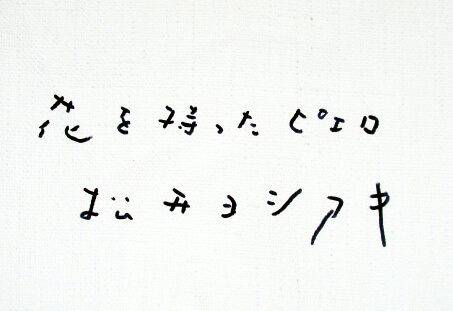 花を持ったピエロ
松井ヨシアキ